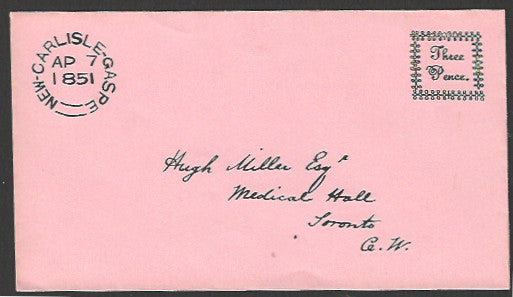 NEW-CARLISLE-GASPE
AP 7
1851
Three
Pence.
Hugh Miller Esqr
Medical Hall
Toronto
C.W.